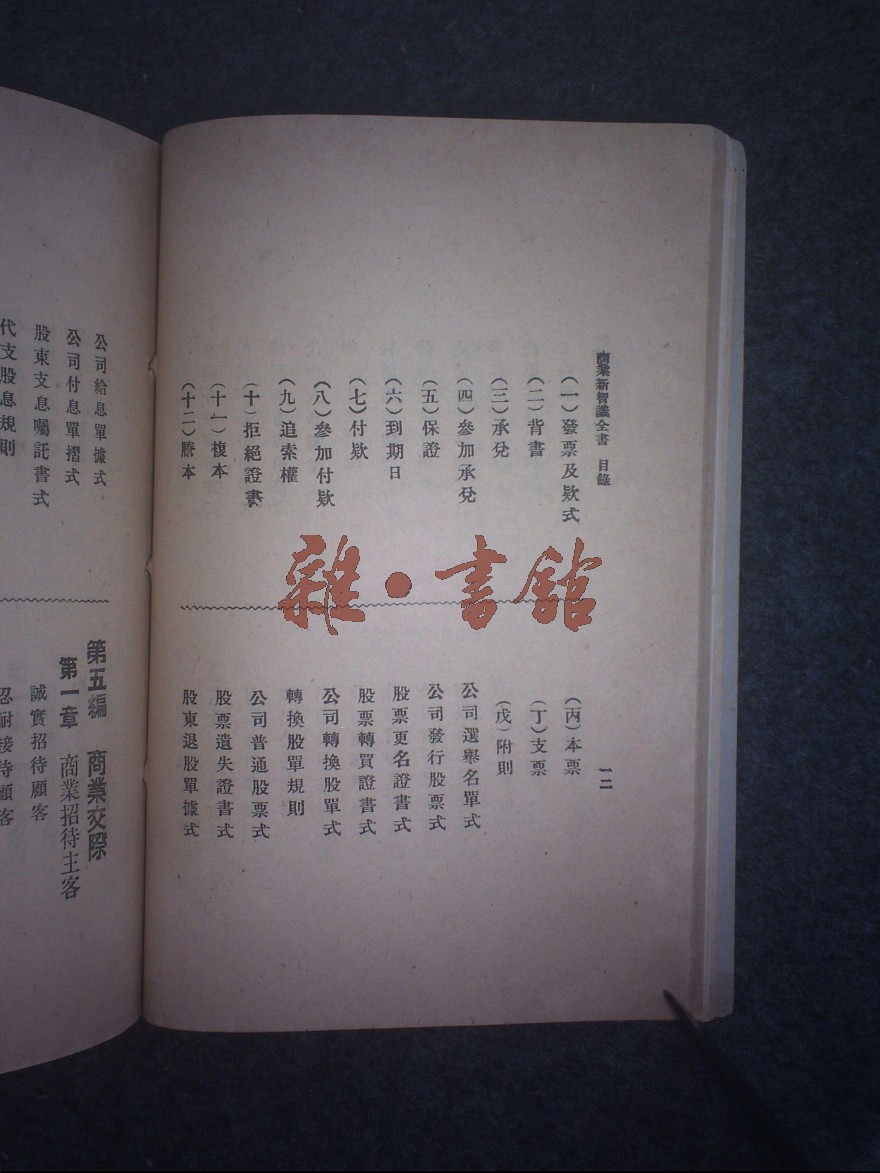 商業新智識全書 目錄
一二
(一)發票及欵式
(二)背書
(三)承兌
(四)參加承兌
(五)保證
(六)到期日
(七)付欵
(八)參加付欵
(九)追索權
(十)拒絕證書
(十一)複本
(十二)謄本
(丙)本票
(丁)支票
(戊)附則
公司選舉名單式
公司發行股票式
股票更名證書式
股票轉買證書式
公司轉換股單式
轉換股單規則
公司普通股票式
股票遺失證書式
股東退股單據式
公司給息單據式
公司付息單摺式
股東支息囑託書式
代支股息規則
第五編 商業交際
第一章 商業招待主客
誠實招待顧客
忍耐接待顧客
雜·書館